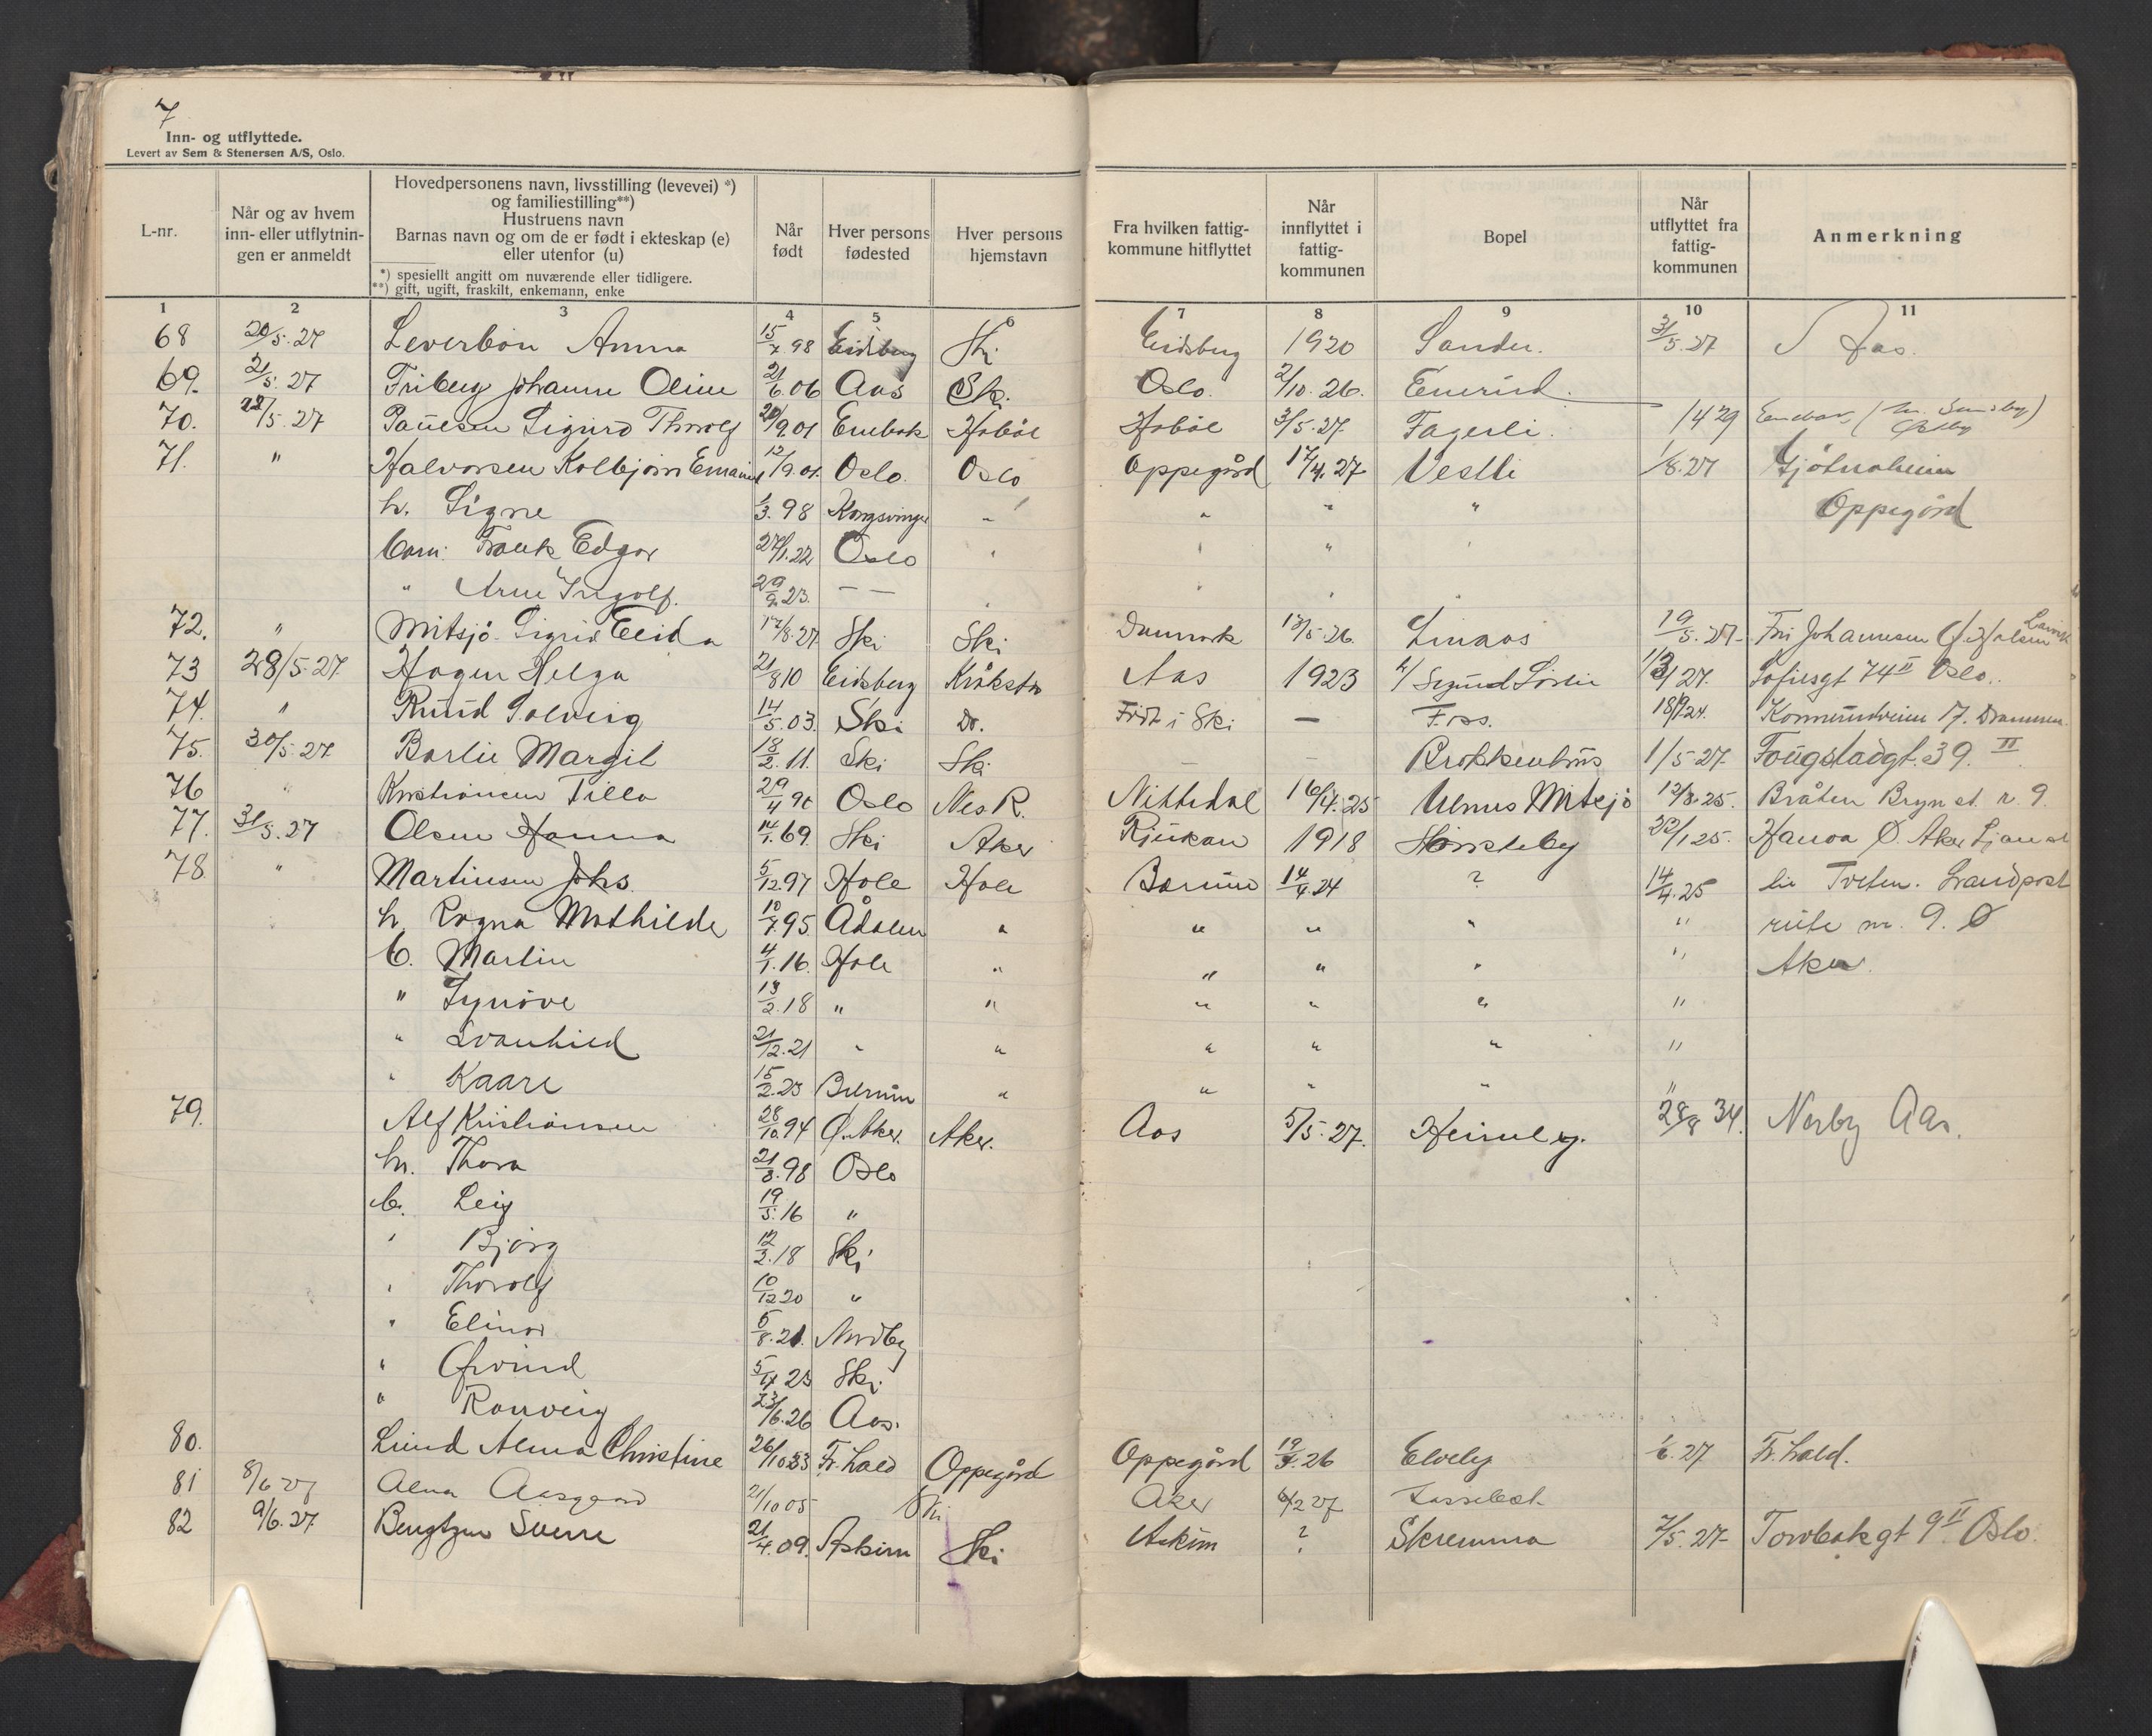 7
Inn- og utflyttede.
Levert av Sem & Stenersen A/S, Oslo.
L-nr.
Når og av hvem inn- eller utflytnin- gen er anmeldt
Hovedpersonens navn, livsstilling (levevei) *) og familiestilling**) Hustruens navn Barnas navn og om de er født i ekteskap (e) eller utenfor (u)
*) spesiellt angitt om nuværende eller tidligere.
**) gift, ugift, fraskilt, enkemann, enke
Når født
Hver persons fødested
Hver persons hjemstavn
Fra hvilken fattig- kommune hitflyttet
Når innflyttet i fattig- kommunen
Bopel
Når utflyttet fra fattig- kommunen
Anmerkning
1 2 3 4 5 6 7 8 9 10 11
68 20/5.27 Leverbön Anna 15/7.98 Eidsberg Ski Eidsberg 1920 Sander. 3/5.27 Aas.
69. 21/5.27 Friberg Johanne Oline 21/6.06 Aas Ski Oslo. 2/10.26.
70. 22/5.27 Paulsen Sigurd Thorolf 20/9.01 Enebak Hobøl Hobøl 3/5.27. Fagerli. 14 29
71. " Halvorsen Kolbjørn 12/9.01. Oslo. Oslo Oppegård 12/4.27 Vestli 1/8.27
h. Signe 1/3.98 Kongsvinger " " " " Oppegård
barn: Frank Edgar 27/1.22 Oslo " " " "
" Arne Ingolf. 29/9.23. — — " " " "
72. " Mitsjö Sigrid Elida 17/8.27 Ski Ski Danmark 13/5.26. 19/5.27 Johannesen
73 28/5.27. Hagen Helga 21/8 10 Eidsberg Kråkstad Aas 1923 27. Sofiesgt 74 II Oslo.
74. " Ruud Solveig 14/5.03. Ski Do. Född i Ski — Foss. 18/9 24. 17. Drammen
75. 30/5.27 Borlie Margit 18/2.11. Ski Ski — — Brokkenhus 1/5 27 Fougstadgt. 39. II
76 " Kristiansen Tilla 29/4 90 Oslo Nes R. Nittedal 16/4.25 Mitsjö 12/8.25. Bråten Bryn st. r. 9.
77. 31/5.27 Olsen Hanna 14/1.69. Ski Aker Rjukan 1918 22/1 25. Ø. Aker Ljan st
78. " Martinsen Johs. 5/12.97 Hole Hole Bærum 14/4 24 ? 14/4.25 Tveten. Landpost
h. Ragna Mathilde 10/7.95. Ådalen " " " " " rute nr. 9. Ø
b. Martin 4/1.16. Hole " " " " " Aker.
" Synöve 13/2.18 " " " " " "
" Svanhild 21/12.21 " " " " " "
" Kaare 15/2.23 Bærum " " " " "
79. Alf Kristiansen 28/10.94 Ø. Aker. Aker. Aas 5/5.27. Heimly. 28/8 34. Nerby Aas.
h. Thora 21/8.98 Oslo
b. Leif 19/5.16 "
" Bjørg 12/2.18 Ski
" Thorolf 10/12 20 "
" Elinor 5/8.21. Nordby
" Øivind 5/4 23 Ski
" Ranveig 23/6.26 Aas.
80. Lund Alma Christine 26/10 83 Fr. hald Oppegård Oppegård 19/7.26 Elveby 1/6.27 Fr. hald.
81 8/6 27 Alma Aasgaard 21/10 05 Ski Aker 6/2 27
82 9/6.27. Bengtzen Sverre 21/4.09. Askim Ski Askim ? Skremma 7/5.27 Torvbakgt 9 II Oslo.